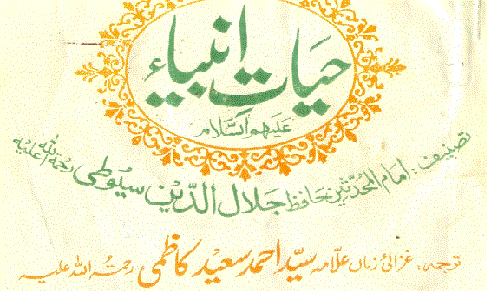 حیات انبیاء
علیہم السلام
تصنیف: امام المحدثین حافظ جلال الدین سیوطی رحمۃ اللہ علیہ
ترجمہ: غزالئ زماں علامہ سید احمد سعید کاظمی رحمۃ اللہ علیہ